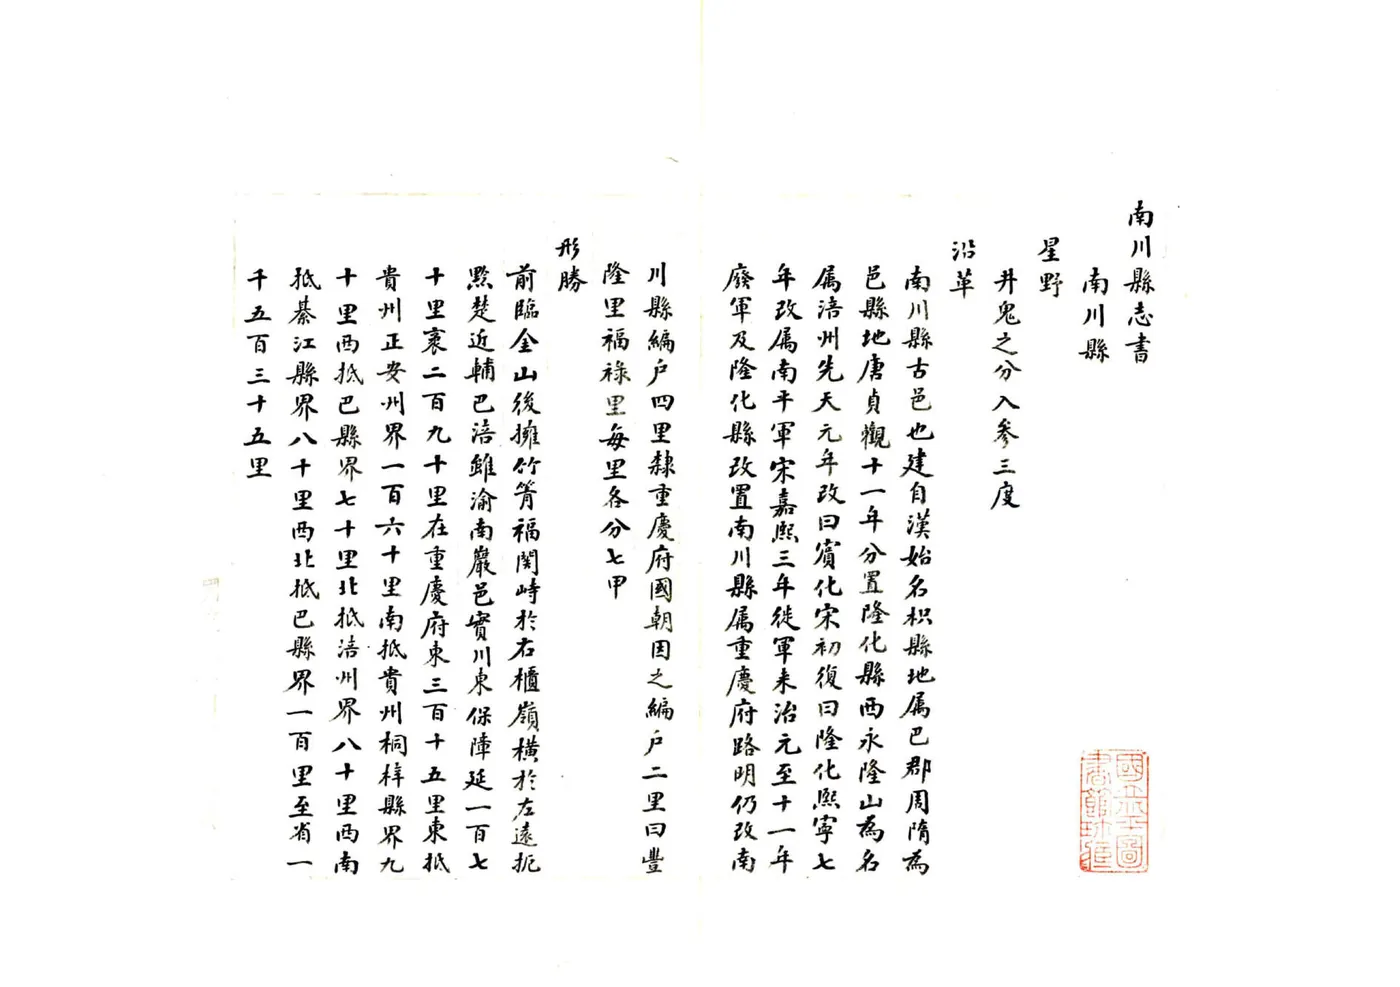 南川縣志書
南川縣
星野
井鬼之分入參三度
沿革
南川縣古邑也建自漢始名枳縣地属巴郡周隋為
邑縣地唐貞觀十一年分置隆化縣西永隆山為名
属涪州先天元年改曰賓化宋初復曰隆化熙寧七
年改属南平軍宋嘉熙三年徙軍来治元至十一年
廢軍及隆化縣改置南川縣属重慶府路明仍改南
川縣編户四里隸重慶府國朝因之編户二里曰豐
隆里福祿里每里各分七甲
形勝
前臨金山後擁竹箐福関峙於右櫃嶺橫於左遠扼
黔楚近輔巴涪雖渝南巖邑實川東保障延一百七
十里袤二百九十里在重慶府東三百十五里東抵
貴州正安州界一百六十里南抵貴州桐梓縣界九
十里西抵巴縣界七十里北抵涪州界八十里西南
抵綦江縣界八十里西北抵巴縣界一百里至省一
千五百三十五里
國立北平圖書館所藏